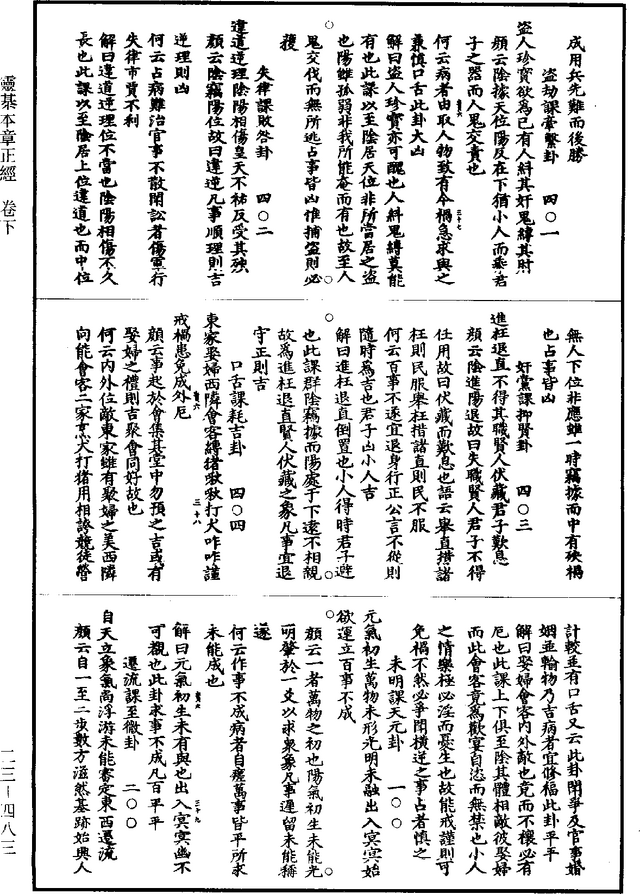 成用兵先難而後勝
盜劫課牽繫卦　四〇一
盜人珍寶欲為己有人糾其奸鬼縛其財
顏云陰據天位陽反在下猶小人而乘君
子之器而人鬼交責也
何云病者由取人物致有今禍急求與之
兼慎口舌此卦大凶
解曰盜人珍寶亦可醜也人糾鬼縛莫能
有也此課以至陰居天位非所當居之盜
也陽雖孤弱非我所能奄而有也故至人
鬼交伐而無所逃占事皆凶惟捕盜則必
獲
失律課敗咎卦　四〇二
違道逆理陰陽相傷皇天不祐反受其殃
顏云陰竊陽位故曰違逆凡事順理則吉
逆理則凶
何云占病難治官事不散鬪訟者傷軍行
失律市賈不利
解曰違道逆理位不當也陰陽相傷不久
長也此課以至陰居上位違道也而中位
無人下位非應雖一時竊據而中有殃禍
也占事皆凶
奸黨課抑賢卦　四〇三
進枉退直不得其職賢人伏藏君子歎息
顏云陰進陽退故曰失職賢人君子不得
任用故曰伏藏而歎息也語云舉直措諸
枉則民服舉枉措諸直則民不服
何云百事不遂宜退身行正公言不從則
隨時為吉也君子凶小人吉
解曰進枉退直倒置也小人得時君子避
也此課群陰竊據而陽處于下遠不相親
故為進枉退直賢人伏藏之象凡事宜退
守正則吉
口舌課耗吉卦　四〇四
東家娶婦西隣會客縛猪啾啾打犬咋咋謹
戒禍患免成外厄
顏云事起於會集其堂中勿預之吉或有
娶婦之禮則吉聚會同好故也
何云內外位敵東家雖有娶婦之美西隣
向能會客二家烹犬打猪用相誇競徒營
計較並有口舌又云此卦鬪爭及官事婚
姻並輸物乃吉病者宜修福此卦平平
解曰娶婦會客內外敵也競而不禳必有
厄也此課上下俱至陰其體相敵彼娶婦
而此會客竟為歡宴自恣而無禁也小人
之情樂極必淫而憂生也故能戒謹則可
免禍不然必爭鬪橫逆之事占者慎之
未明課天元卦　一〇〇
元氣初生萬物未形光明未融出入冥冥始
欲運立百事不成
顏云一者萬物之初也陽氣初生未能光
明肇於一爻以求眾象凡事遲留未能稱
遂
何云作事不成病者自瘥萬事皆平所求
未能成也
解曰元氣初生未有與也出入冥冥幽不
可觀也此卦求事不成凡百平平
遷流課至微卦　二〇〇
自天立象氣尚浮游未能審定東西遷流
顏云自一至二步數方滋然基跡始興人
靈棊本章正經　卷下
二三—四八三